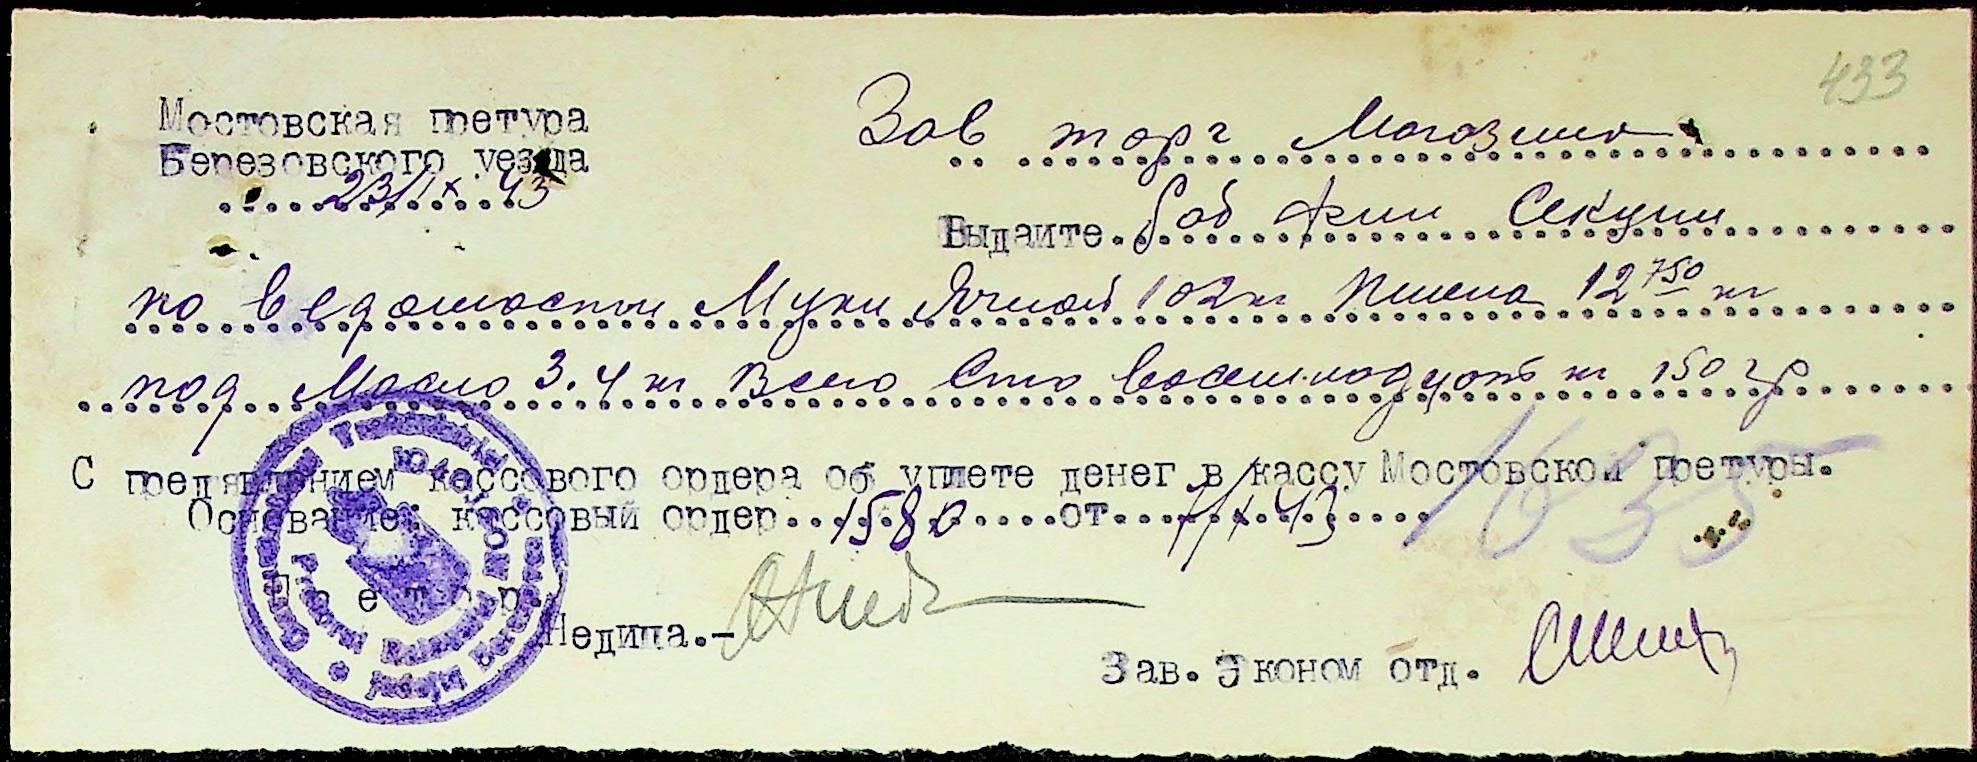 433
Мостовская претура
Березовского уезда
23/IX 43
Зав торг Магазина
Выдайте раб Секции
по ведомости Муки Ячной 102 кг Пшена 12 750 кг
под Масло 3.4 кг Всего Сто восемнадцать кг 150 гр
С предявлением кассового ордера об уплете денег в кассу Мостовской претуры.
Основание: кассовый ордер 1580 от 1/X 43
1635
Претор.
Недина.-
Зав. Эконом отд.